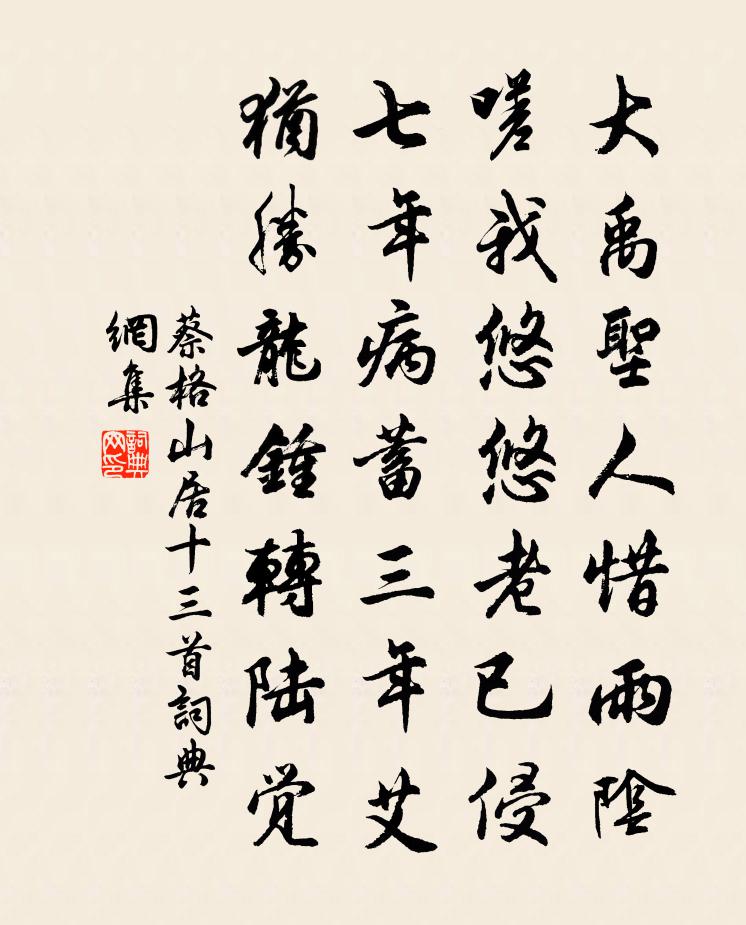 大禹聖人惜雨陰
嗟我悠悠老已侵
七年病蓄三年艾
猶勝龍鍾轉陆觉
蔡格山居十三首詞典
網集
詞典
网印